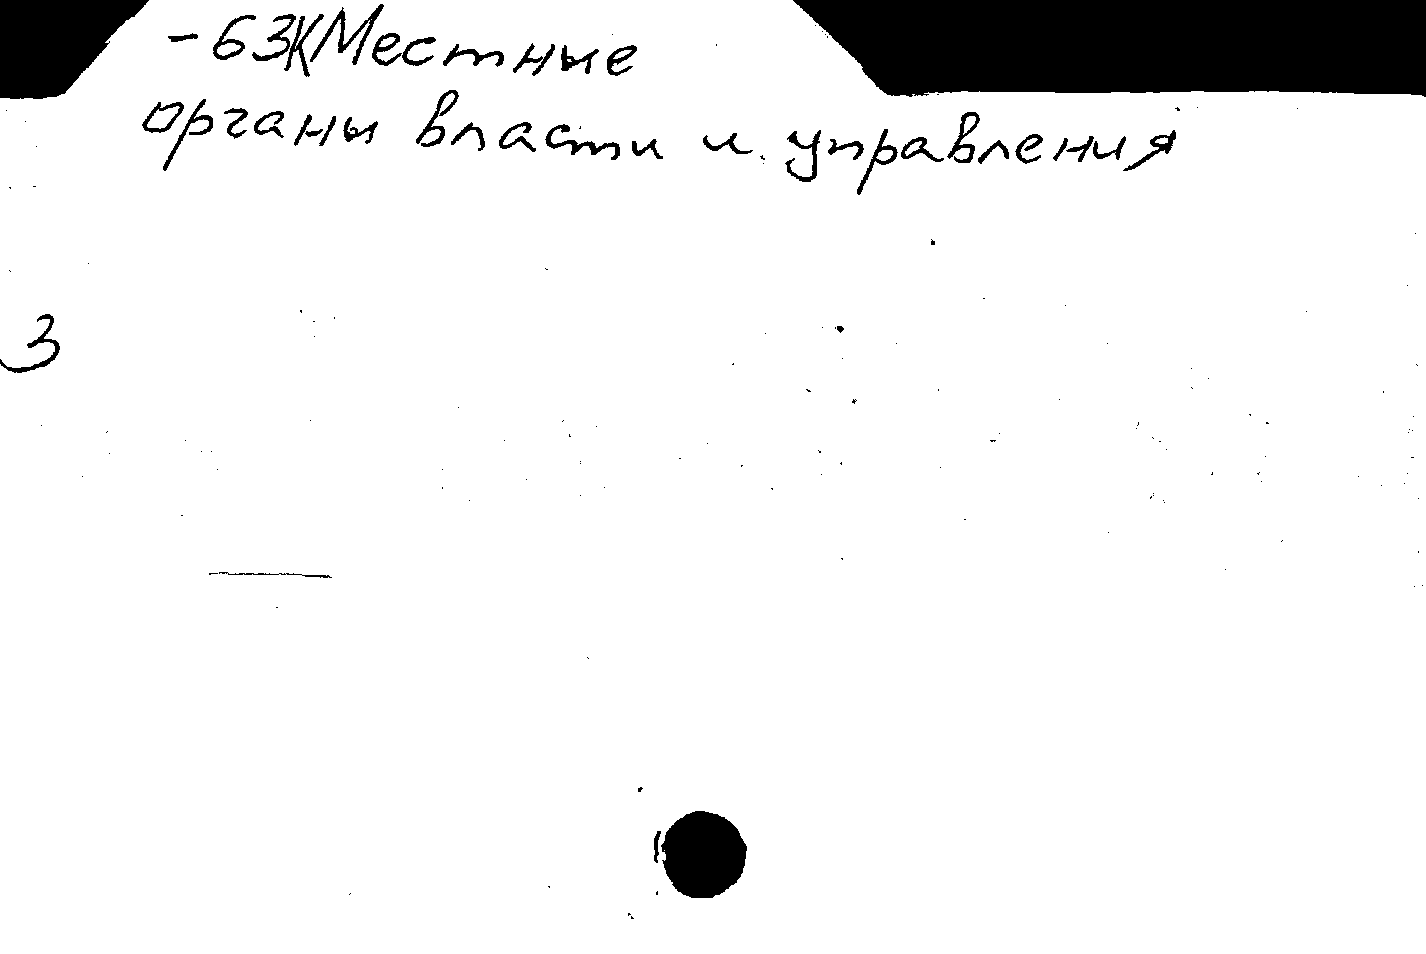 -63ЖМестные
органы власти и управления
3